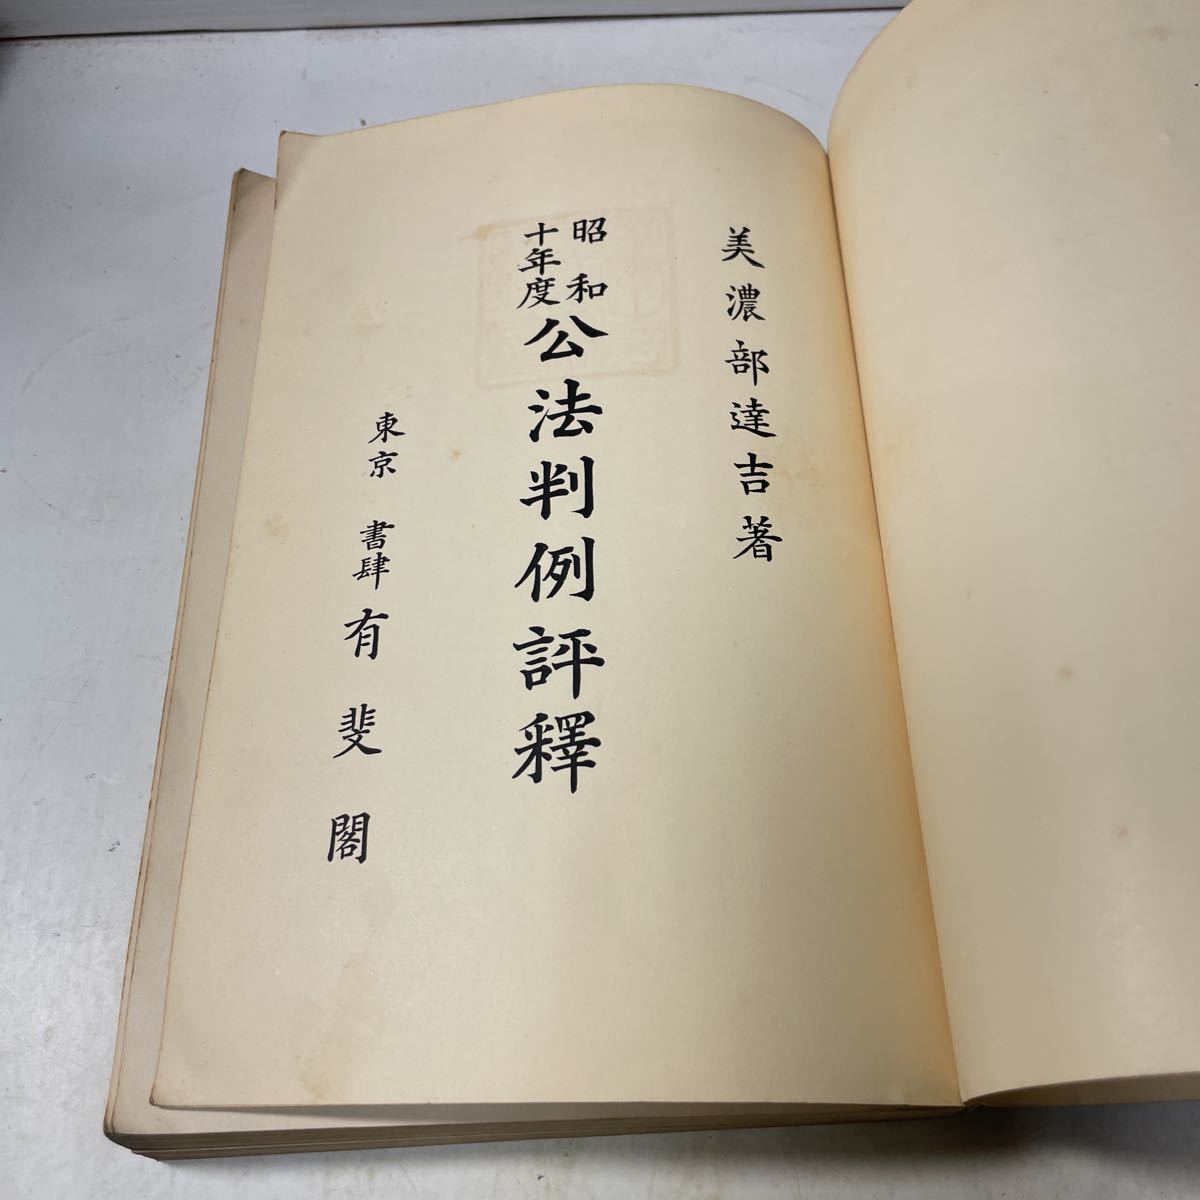 美濃部達吉著
昭和
十年度
公法判例評釋
東京
書肆
有斐閣